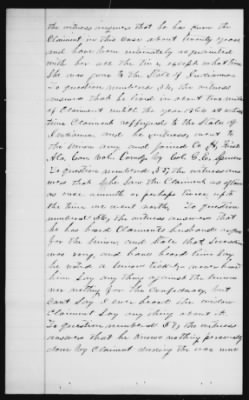 the witness answers that he has known the
Claimant in this case about twenty years
and have been intimately acquainted
with her all the time, except what time
She was gone to the State of Indiana
To question numbered 56, the witness
answers that he lived in about two miles
of Claimant until the year 1862 at which
time Claimant refugeed to the State of
Indiana, and he, witness, went to
the Union army and joined Co. H, First
Ala. Cav. Vols. Comdg. by Col. G. E. Spencer
To question numbered 57, the witness answers
that Sple. saw the Claimant as often
as once a month or perhaps twice, up to
the time we went north. To question
numbered 58, the witness answers that
he has heard Claimants husband argue
for the Union, and state that secession
was wrong, and have heard him say
he voted a Union ticket, never heard
him say any thing against the Union
nor nothing for the Confederacy, but
can't say I ever heard the widow
Claimant say any thing about it.
To question numbered 59, the witness
answers that he knows nothing personally
done by Claimant during the war until